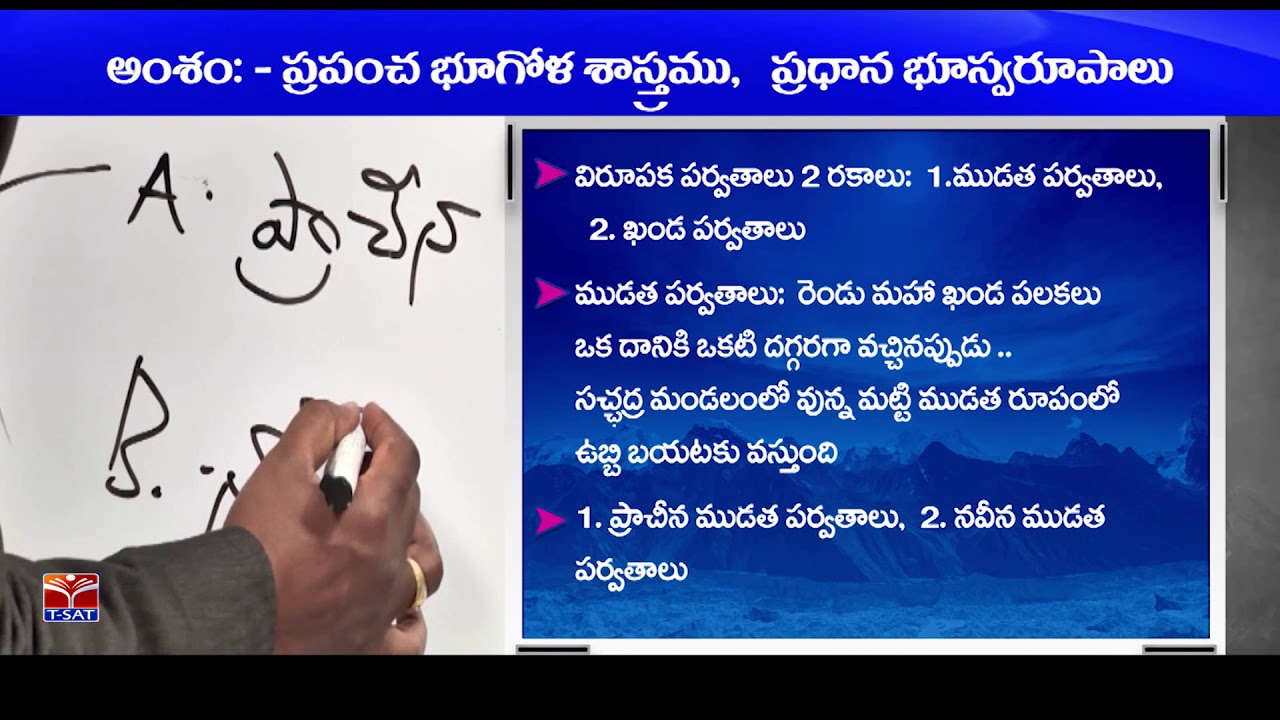 అంశం: - ప్రపంచ భూగోళ శాస్త్రము, ప్రధాన భూస్వరూపాలు
A. ప్రాచీన
B.
విరూపక పర్వతాలు 2 రకాలు: 1.ముడత పర్వతాలు,
2. ఖండ పర్వతాలు
ముడత పర్వతాలు: రెండు మహా ఖండ పలకలు
ఒక దానికి ఒకటి దగ్గరగా వచ్చినప్పుడు ..
సచ్ఛిద్ర మండలంలో వున్న మట్టి ముడత రూపంలో
ఉబ్బి బయటకు వస్తుంది
1. ప్రాచీన ముడత పర్వతాలు, 2. నవీన ముడత
పర్వతాలు
T-SAT